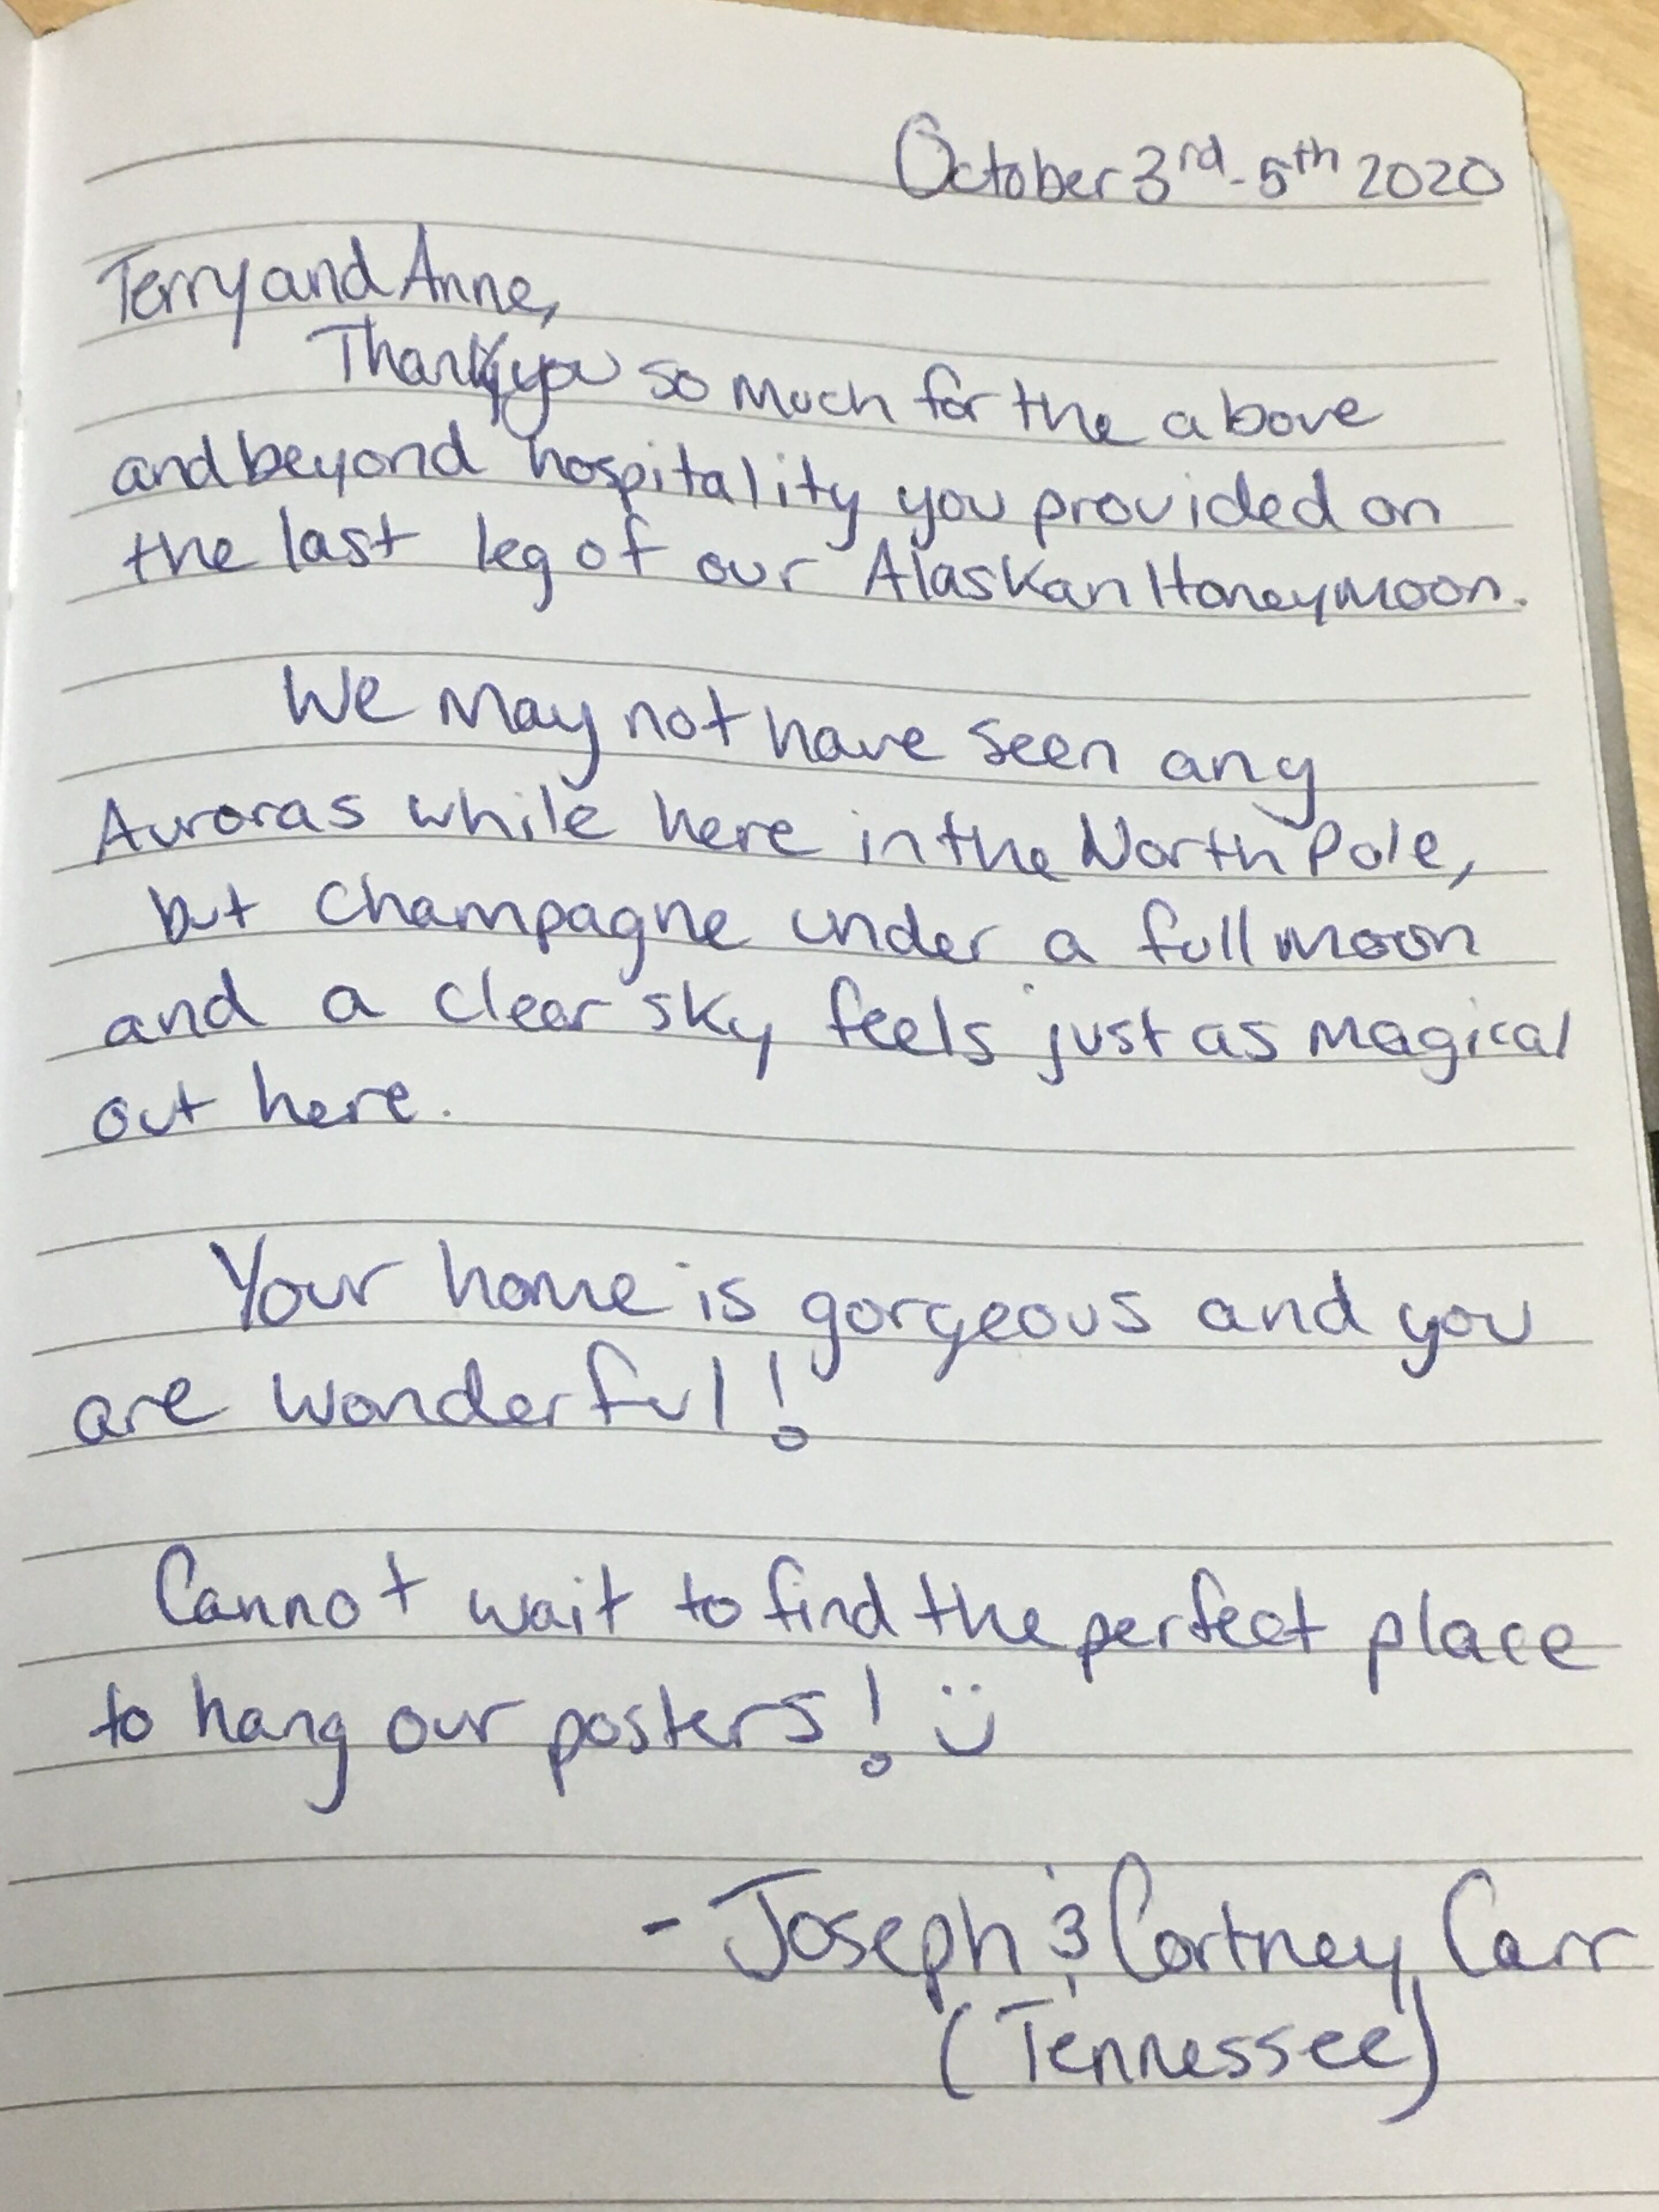 October 3rd - 5th 2020
Terry and Anne,
Thank you so much for the above
and beyond hospitality you provided on
the last leg of our Alaskan Honeymoon.
We May not have seen any
Auroras while here in the North Pole,
but champagne under a full moon
and a clear sky feels just as magical
out here.
Your home is gorgeous and you
are wonderful!
Cannot wait to find the perfect place
to hang our posters! :)
- Joseph & Cortney Carr
(Tennessee)